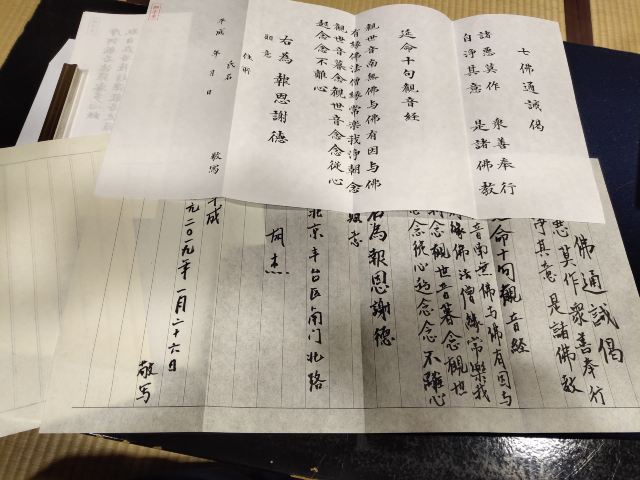 七佛通誡偈
諸悪莫作 衆善奉行
自淨其意 是諸佛教
延命十句觀音経
觀世音南無佛与佛有因与佛
有縁佛法僧縁常樂我淨朝念
觀世音暮念觀世音念念従心
起念念不離心
右為 報恩謝德
願意
住所
氏名
平成 年 月 日
敬写
佛通誡偈
莫作衆善奉行
淨其意 是諸佛教
命十句觀音経
音南無佛与佛有因与
縁佛法僧縁常樂我
念觀世音暮念觀世
念念従心起念念不離心
右為報恩謝德
願意
北京丰台区南门北路
成
二〇一九年一月二十六日
敬写